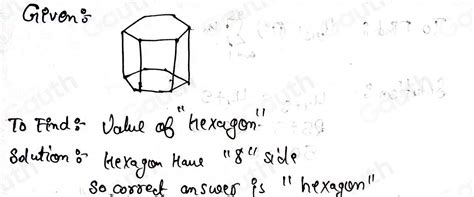 Given:-
To Find:- Value of "Hexagon."
Solution:- Hexagon Have "8" side
So correct answer is "hexagon"